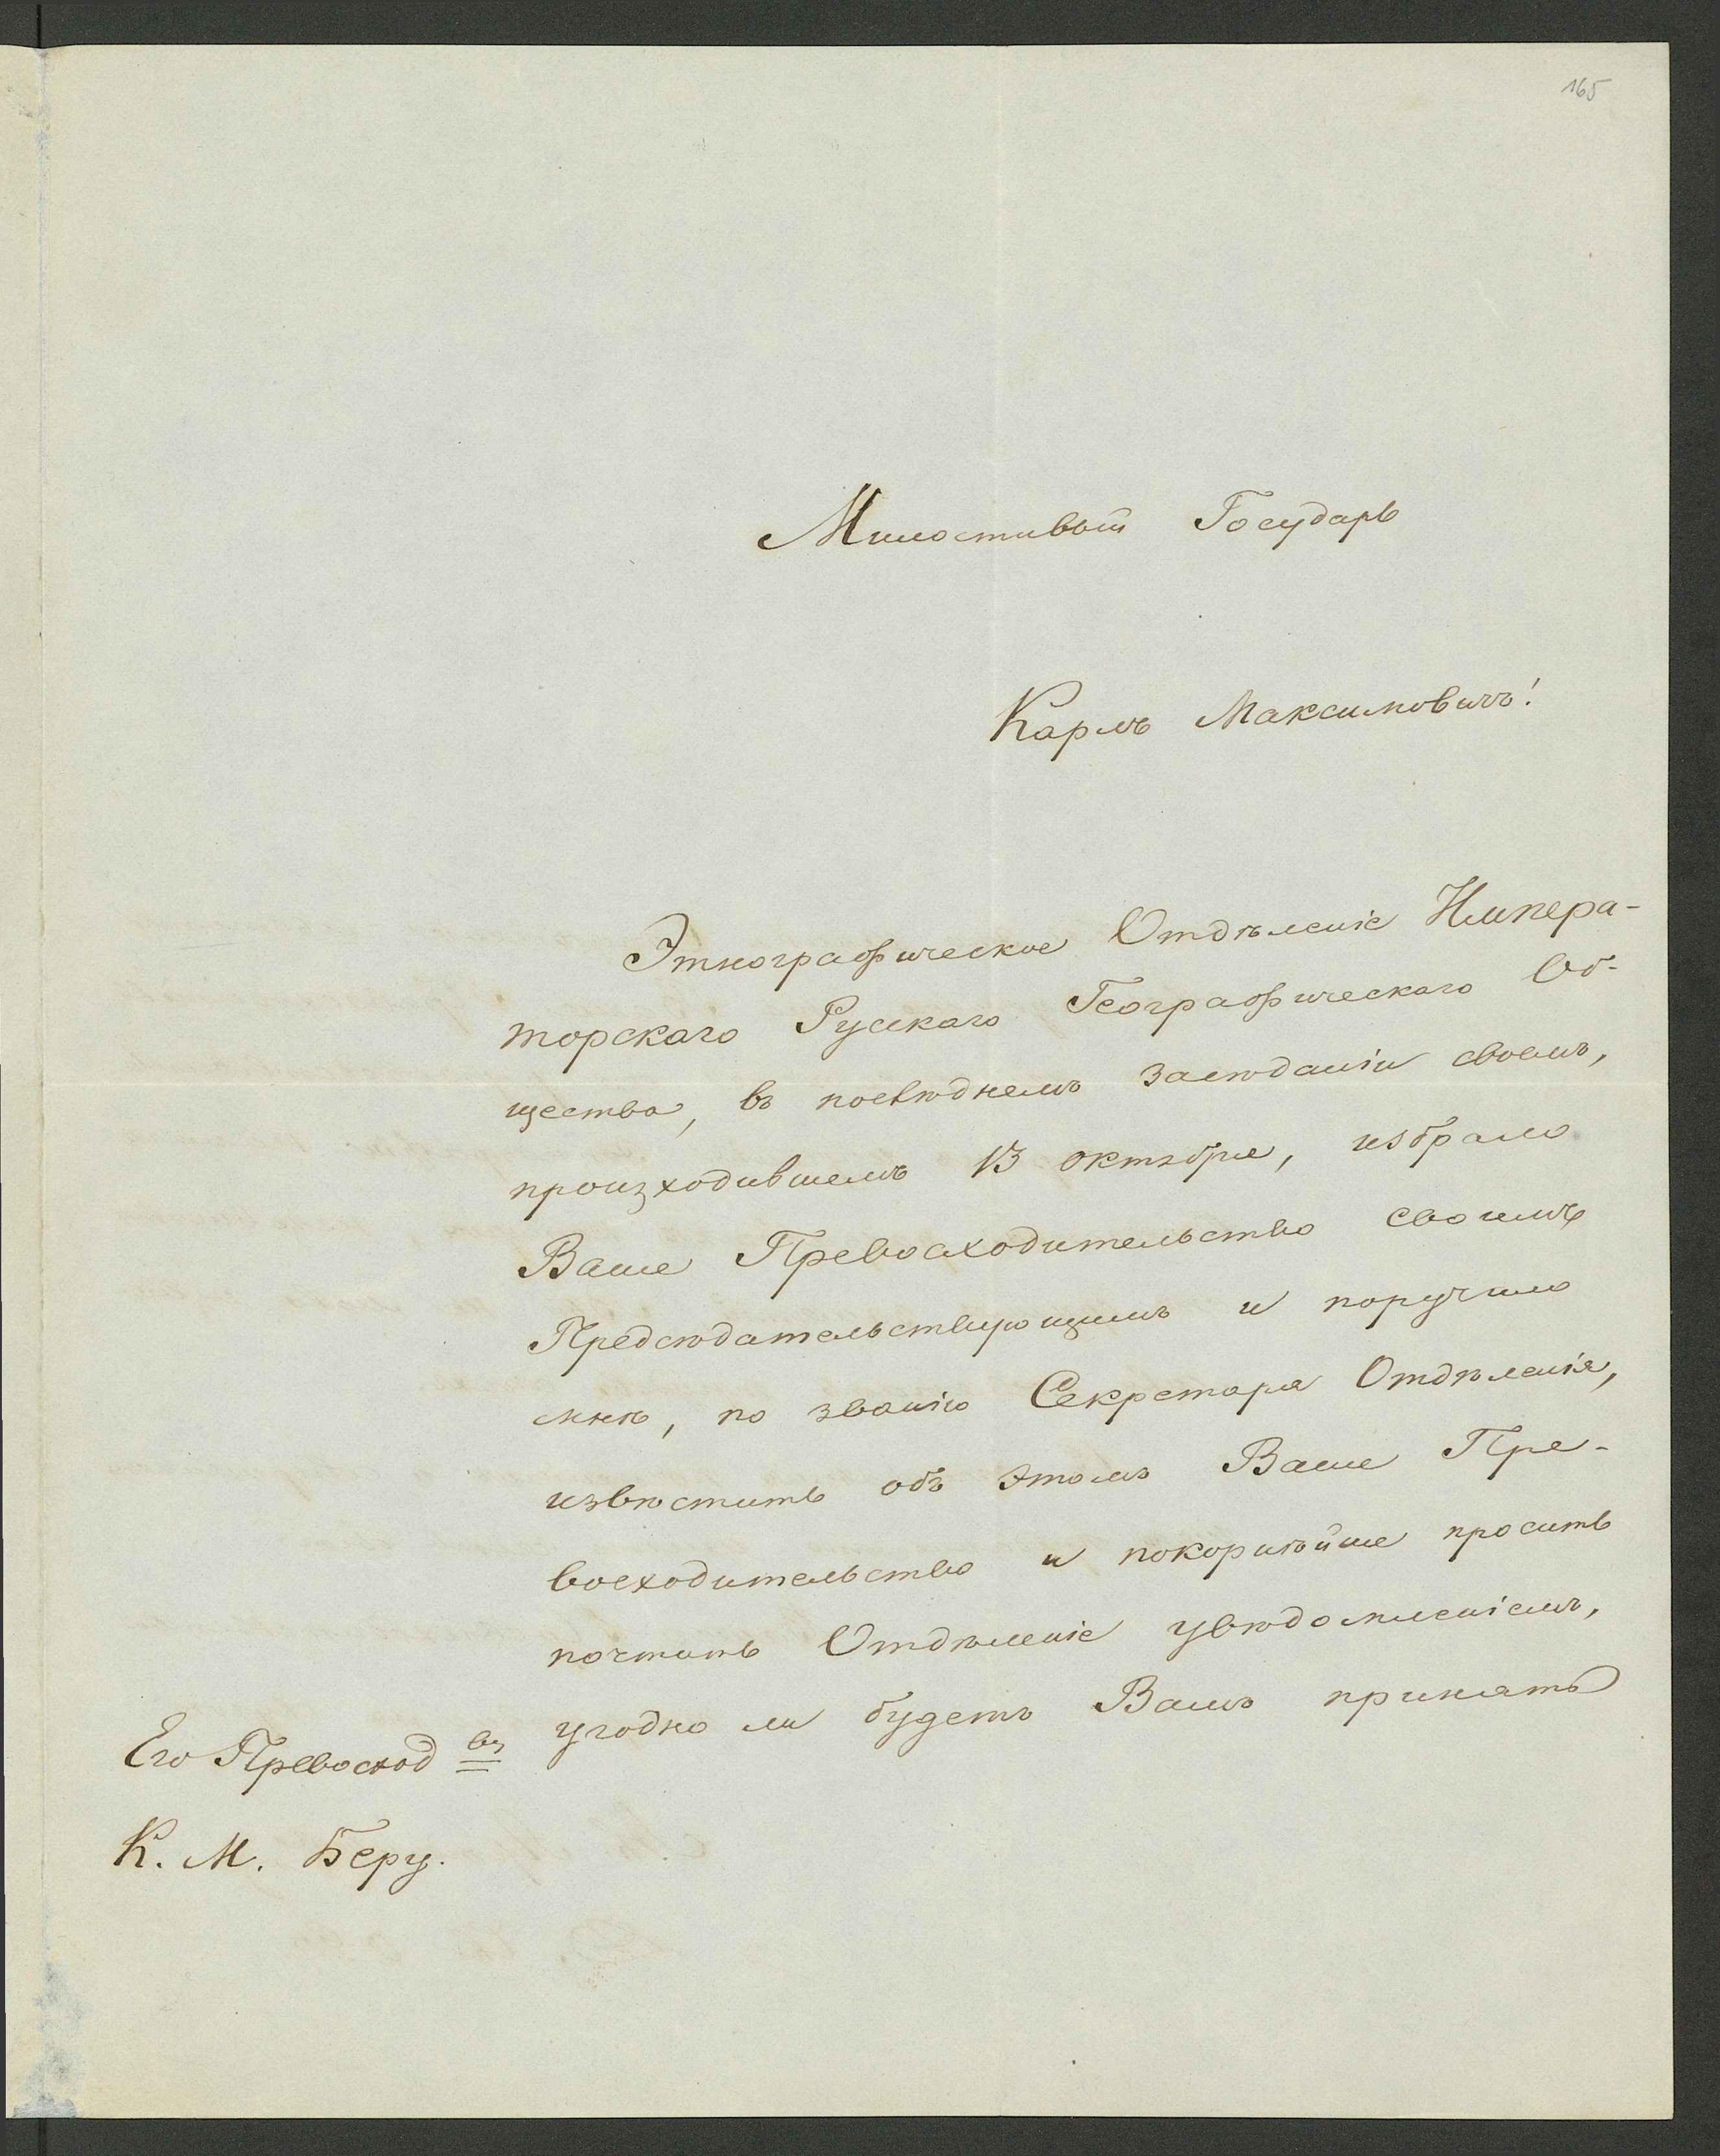 165
Милостивый Государь
Карлъ Максимовичъ!
Этнографическое Отдѣленіе Импера-
торскаго Русскаго Географическаго Об-
щества, въ послѣднемъ засѣданіи своемъ,
произходившемъ 13 октября, избрало
Ваше Превосходительство своимъ
Предсѣдательствующимъ и поручило
мнѣ, по званію Секретаря Отдѣленія,
извѣстить объ этомъ Ваше Пре-
восходительство и покорнѣйше просить
почтить Отдѣленіе увѣдомленіемъ,
угодно ли будетъ Вамъ принять
Его Превосход ву
К. М. Беру.